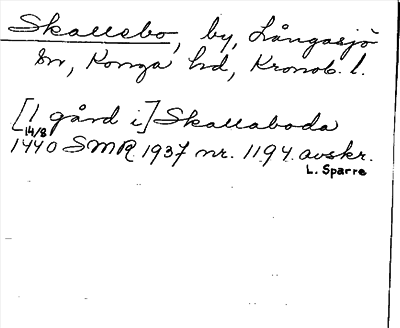 Skallebo, by, Långasjö
sn, Konga hd, Kronob. l.
[1 gård i] Skallaboda
14/8
1440 SMR 1937 nr. 1194. avskr.
L. Sparre